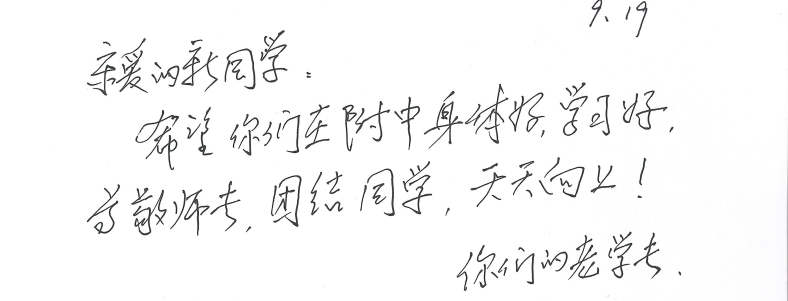 9.19
亲爱的新同学：
希望你们在附中身体好，学习好，
尊敬师长，团结同学，天天向上！
你们的老学长.